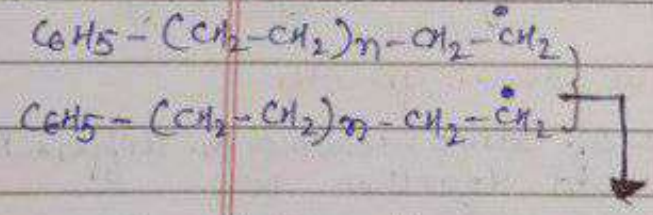 C6H5-(CH2-CH2)n-CH2-ĊH2
C6H5-(CH2-CH2)n-CH2-ĊH2